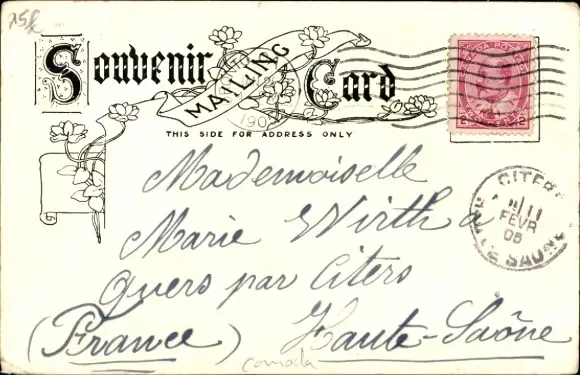 Souvenir MAILING Card
THIS SIDE FOR ADDRESS ONLY
190
CANADA POSTAGE
2 CENTS 2
Mademoiselle
Marie Wirth à
Quers par Citers
(France) Haute-Saône
Canada
CITERS
11
FEVR
05
TE SAONE